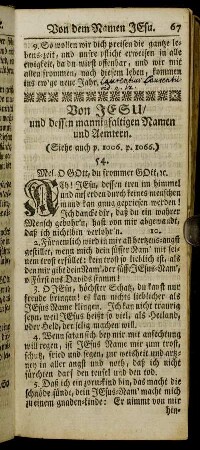 Von dem Namen JEsu. 67
9. So wollen wir dich preisen die gantze le-
bens-zeit, und unsre pflicht erweisen in alle
ewigkeit, da du wirst offenbar, und wir mit
allen frommen, nach diesem leben, kommen
ins ew'ge neue Jahr.
Von JESU/
und dessen mannigfaltigen Namen
und Aemtern.
(Siehe auch p. 1006. p. 1066.)
54.
Mel. O GOtt, du frommer GOtt, ꝛc.
Ach! JEsu, dessen treu im himmel
und auf erden durch keines menschen
mund kan gnug gepriesen werden!
Ich dancke dir, daß du ein wahrer
Mensch gebohr'n, hast von mir abgewandt,
daß ich nicht bin verlohr'n.
2. Fürnemlich wird in mir all hertzens-angst
gestillet, wenn mich dein süsser Nam' mit sei-
nem trost erfüllet: kein trost so lieblich ist, als
den mir gibt dein Nam', der süsse JEsus-Nam',
o Fürst aus Davids stamm!
3. O JEsu, höchster Schatz, du kanst nur
freude bringen! es kan nichts lieblicher als
JEsus Name klingen. Ich kan nicht traurig
seyn, weil JEsus heißt so viel, als Heiland,
oder Held, der selig machen will.
4. Wenn satanas sich bey mir mit anfechtung
will regen, ist JEsus Name mir zum trost,
schutz, fried und segen, zur weisheit und artz-
ney in aller angst und noth, daß ich nicht
fürchten darf den teufel und den tod.
5. Daß ich ein zornkind bin, das macht die
schnöde sünde, dein JEsus-Nam' macht mich
zu einem gnaden-kinde: Er nimmt von mir
hin-